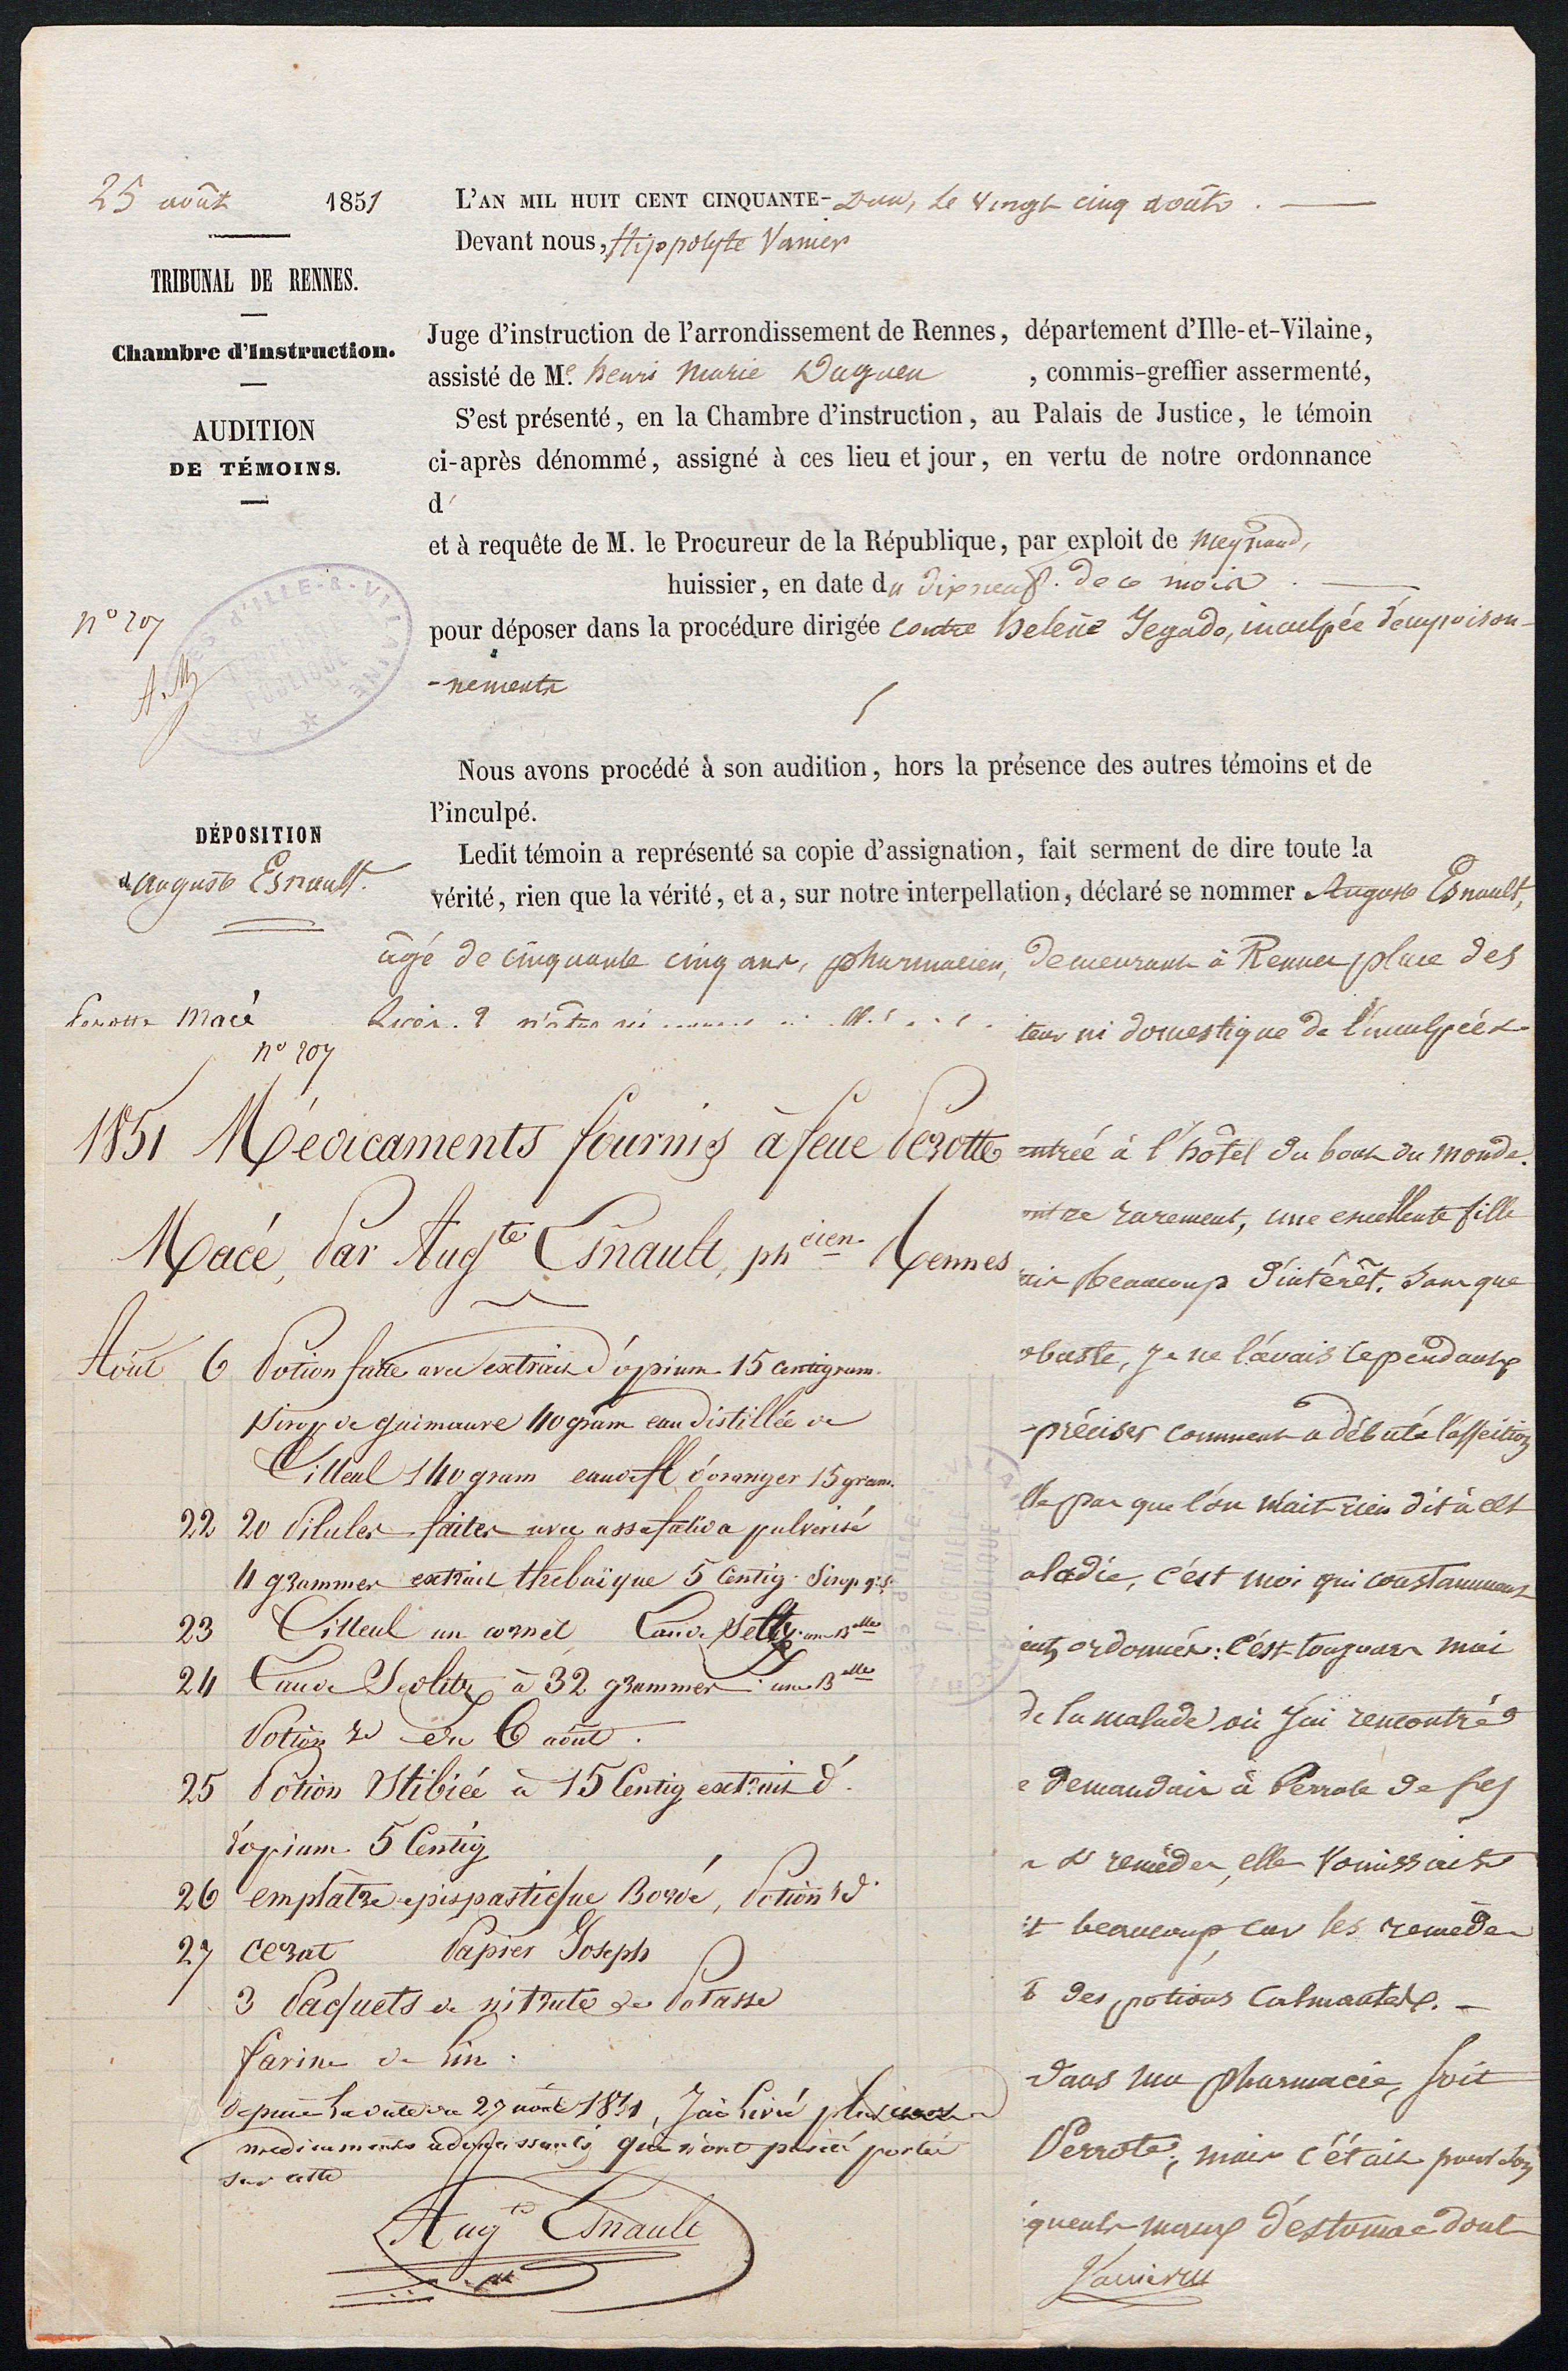 25 août 1851
TRIBUNAL DE RENNES.
Chambre d'Instruction.
AUDITION
DE TÉMOINS.
n° 207
DÉPOSITION
d'Auguste Esnault.
Perotte Macé
L'AN MIL HUIT CENT CINQUANTE-un, le vingt cinq août.
Devant nous, Hippolyte Vanier
Juge d'instruction de l'arrondissement de Rennes, département d'Ille-et-Vilaine,
assisté de Me. henri Marie Duguen, commis-greffier assermenté,
S'est présenté, en la Chambre d'instruction, au Palais de Justice, le témoin
ci-après dénommé, assigné à ces lieu et jour, en vertu de notre ordonnance
d
et à requête de M. le Procureur de la République, par exploit de Meynaud,
huissier, en date du dix neuf de ce mois.
pour déposer dans la procédure dirigée contre helène Jegado, inculpée d'empoison-
-nements
Nous avons procédé à son audition, hors la présence des autres témoins et de
l'inculpé.
Ledit témoin a représenté sa copie d'assignation, fait serment de dire toute la
vérité, rien que la vérité, et a, sur notre interpellation, déclaré se nommer Auguste Esnault,
âgé de cinquante cinq ans, pharmacien, demeurant à Rennes place des
Lices. & n'être ni
teur ni domestique de l'inculpée
n° 207
1851 Médicaments fournis à feue Perotte
Macé, Par Augte Esnault, phcien Rennes
Août 6 Potion faite avec extrait d'opium 15 centigram.
Sirop de guimauve 40 gram eau distillée de
Tilleul 140 gram eau de fl d'oranger 15 gram.
22 20 Pilules faites avec assafœtida pulverisé
4 grammes extrait thebaïque 5 Centig. Sirop q.s.
23 Tilleul un cornet Eau de Seltz une Blle
24 Eau de Sedlitz à 32 grammes une Blle
Potion rd du 6 août.
25 Potion Stibiée à 15 Centig extrait d'
d'opium 5 Centig
26 emplâtre epispastique Bordé, Potion rd.
27 cerat Papier Joseph
3 Paquets de nitrate de Potasse
farine de Lin.
depuis la date du 27 août 1851, J'ai livré plusieurs
medicaments adoucissants qui n'ont pas été portés
sur cette
Augte Esnault
entrée à l'hôtel du bout du monde.
ontre rarement, une excellente fille
ais beaucoup d'intérêt. Sans que
obuste, je ne l'avais cependant
préciser comment a débuté l'affection
lle pas que l'on m'ait rien dit à cet
aladie, c'est moi qui constamment
ients ordonnés: c'est toujours moi
de la malade où j'ai rencontré
e demandais à Perrote de ses
& remèdes, elle vomissait
it beaucoup, car les remèdes
t des potions calmantes. -
dans ma pharmacie, soit
Perrote; mais c'était pour des
iquents maux d'estomac dont
Vanier